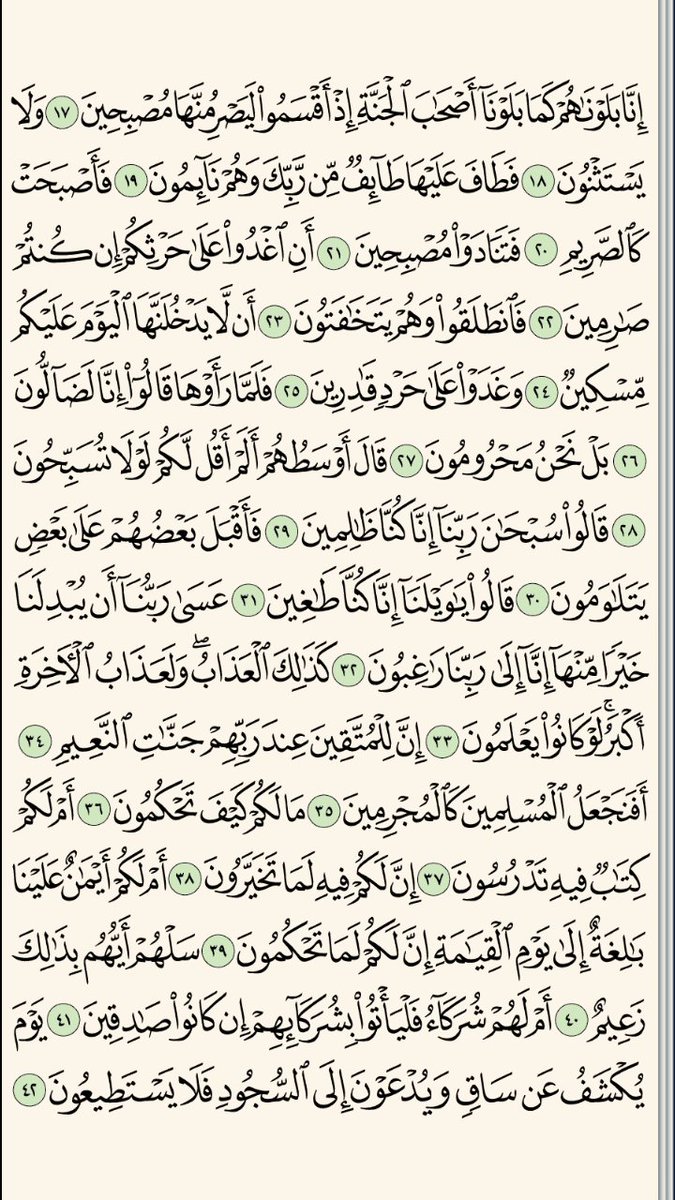 إِنَّا بَلَوْنَٰهُمْ كَمَا بَلَوْنَآ أَصْحَٰبَ ٱلْجَنَّةِ إِذْ أَقْسَمُوا۟ لَيَصْرِمُنَّهَا مُصْبِحِينَ ١٧ وَلَا
يَسْتَثْنُونَ ١٨ فَطَافَ عَلَيْهَا طَآئِفٌ مِّن رَّبِّكَ وَهُمْ نَآئِمُونَ ١٩ فَأَصْبَحَتْ
كَٱلصَّرِيمِ ٢٠ فَتَنَادَوْا۟ مُصْبِحِينَ ٢١ أَنِ ٱغْدُوا۟ عَلَىٰ حَرْثِكُمْ إِن كُنتُمْ
صَٰرِمِينَ ٢٢ فَٱنطَلَقُوا۟ وَهُمْ يَتَخَٰفَتُونَ ٢٣ أَن لَّا يَدْخُلَنَّهَا ٱلْيَوْمَ عَلَيْكُم
مِّسْكِينٌ ٢٤ وَغَدَوْا۟ عَلَىٰ حَرْدٍ قَٰدِرِينَ ٢٥ فَلَمَّا رَأَوْهَا قَالُوٓا۟ إِنَّا لَضَآلُّونَ
٢٦ بَلْ نَحْنُ مَحْرُومُونَ ٢٧ قَالَ أَوْسَطُهُمْ أَلَمْ أَقُل لَّكُمْ لَوْلَا تُسَبِّحُونَ
٢٨ قَالُوا۟ سُبْحَٰنَ رَبِّنَآ إِنَّا كُنَّا ظَٰلِمِينَ ٢٩ فَأَقْبَلَ بَعْضُهُمْ عَلَىٰ بَعْضٍ
يَتَلَٰوَمُونَ ٣٠ قَالُوا۟ يَٰوَيْلَنَآ إِنَّا كُنَّا طَٰغِينَ ٣١ عَسَىٰ رَبُّنَآ أَن يُبْدِلَنَا
خَيْرًا مِّنْهَآ إِنَّآ إِلَىٰ رَبِّنَا رَٰغِبُونَ ٣٢ كَذَٰلِكَ ٱلْعَذَابُ ۖ وَلَعَذَابُ ٱلْـَٔاخِرَةِ
أَكْبَرُ ۚ لَوْ كَانُوا۟ يَعْلَمُونَ ٣٣ إِنَّ لِلْمُتَّقِينَ عِندَ رَبِّهِمْ جَنَّٰتِ ٱلنَّعِيمِ ٣٤
أَفَنَجْعَلُ ٱلْمُسْلِمِينَ كَٱلْمُجْرِمِينَ ٣٥ مَا لَكُمْ كَيْفَ تَحْكُمُونَ ٣٦ أَمْ لَكُمْ
كِتَٰبٌ فِيهِ تَدْرُسُونَ ٣٧ إِنَّ لَكُمْ فِيهِ لَمَا تَخَيَّرُونَ ٣٨ أَمْ لَكُمْ أَيْمَٰنٌ عَلَيْنَا
بَٰلِغَةٌ إِلَىٰ يَوْمِ ٱلْقِيَٰمَةِ إِنَّ لَكُمْ لَمَا تَحْكُمُونَ ٣٩ سَلْهُمْ أَيُّهُم بِذَٰلِكَ
زَعِيمٌ ٤٠ أَمْ لَهُمْ شُرَكَآءُ فَلْيَأْتُوا۟ بِشُرَكَآئِهِمْ إِن كَانُوا۟ صَٰدِقِينَ ٤١ يَوْمَ
يُكْشَفُ عَن سَاقٍ وَيُدْعَوْنَ إِلَى ٱلسُّجُودِ فَلَا يَسْتَطِيعُونَ ٤٢